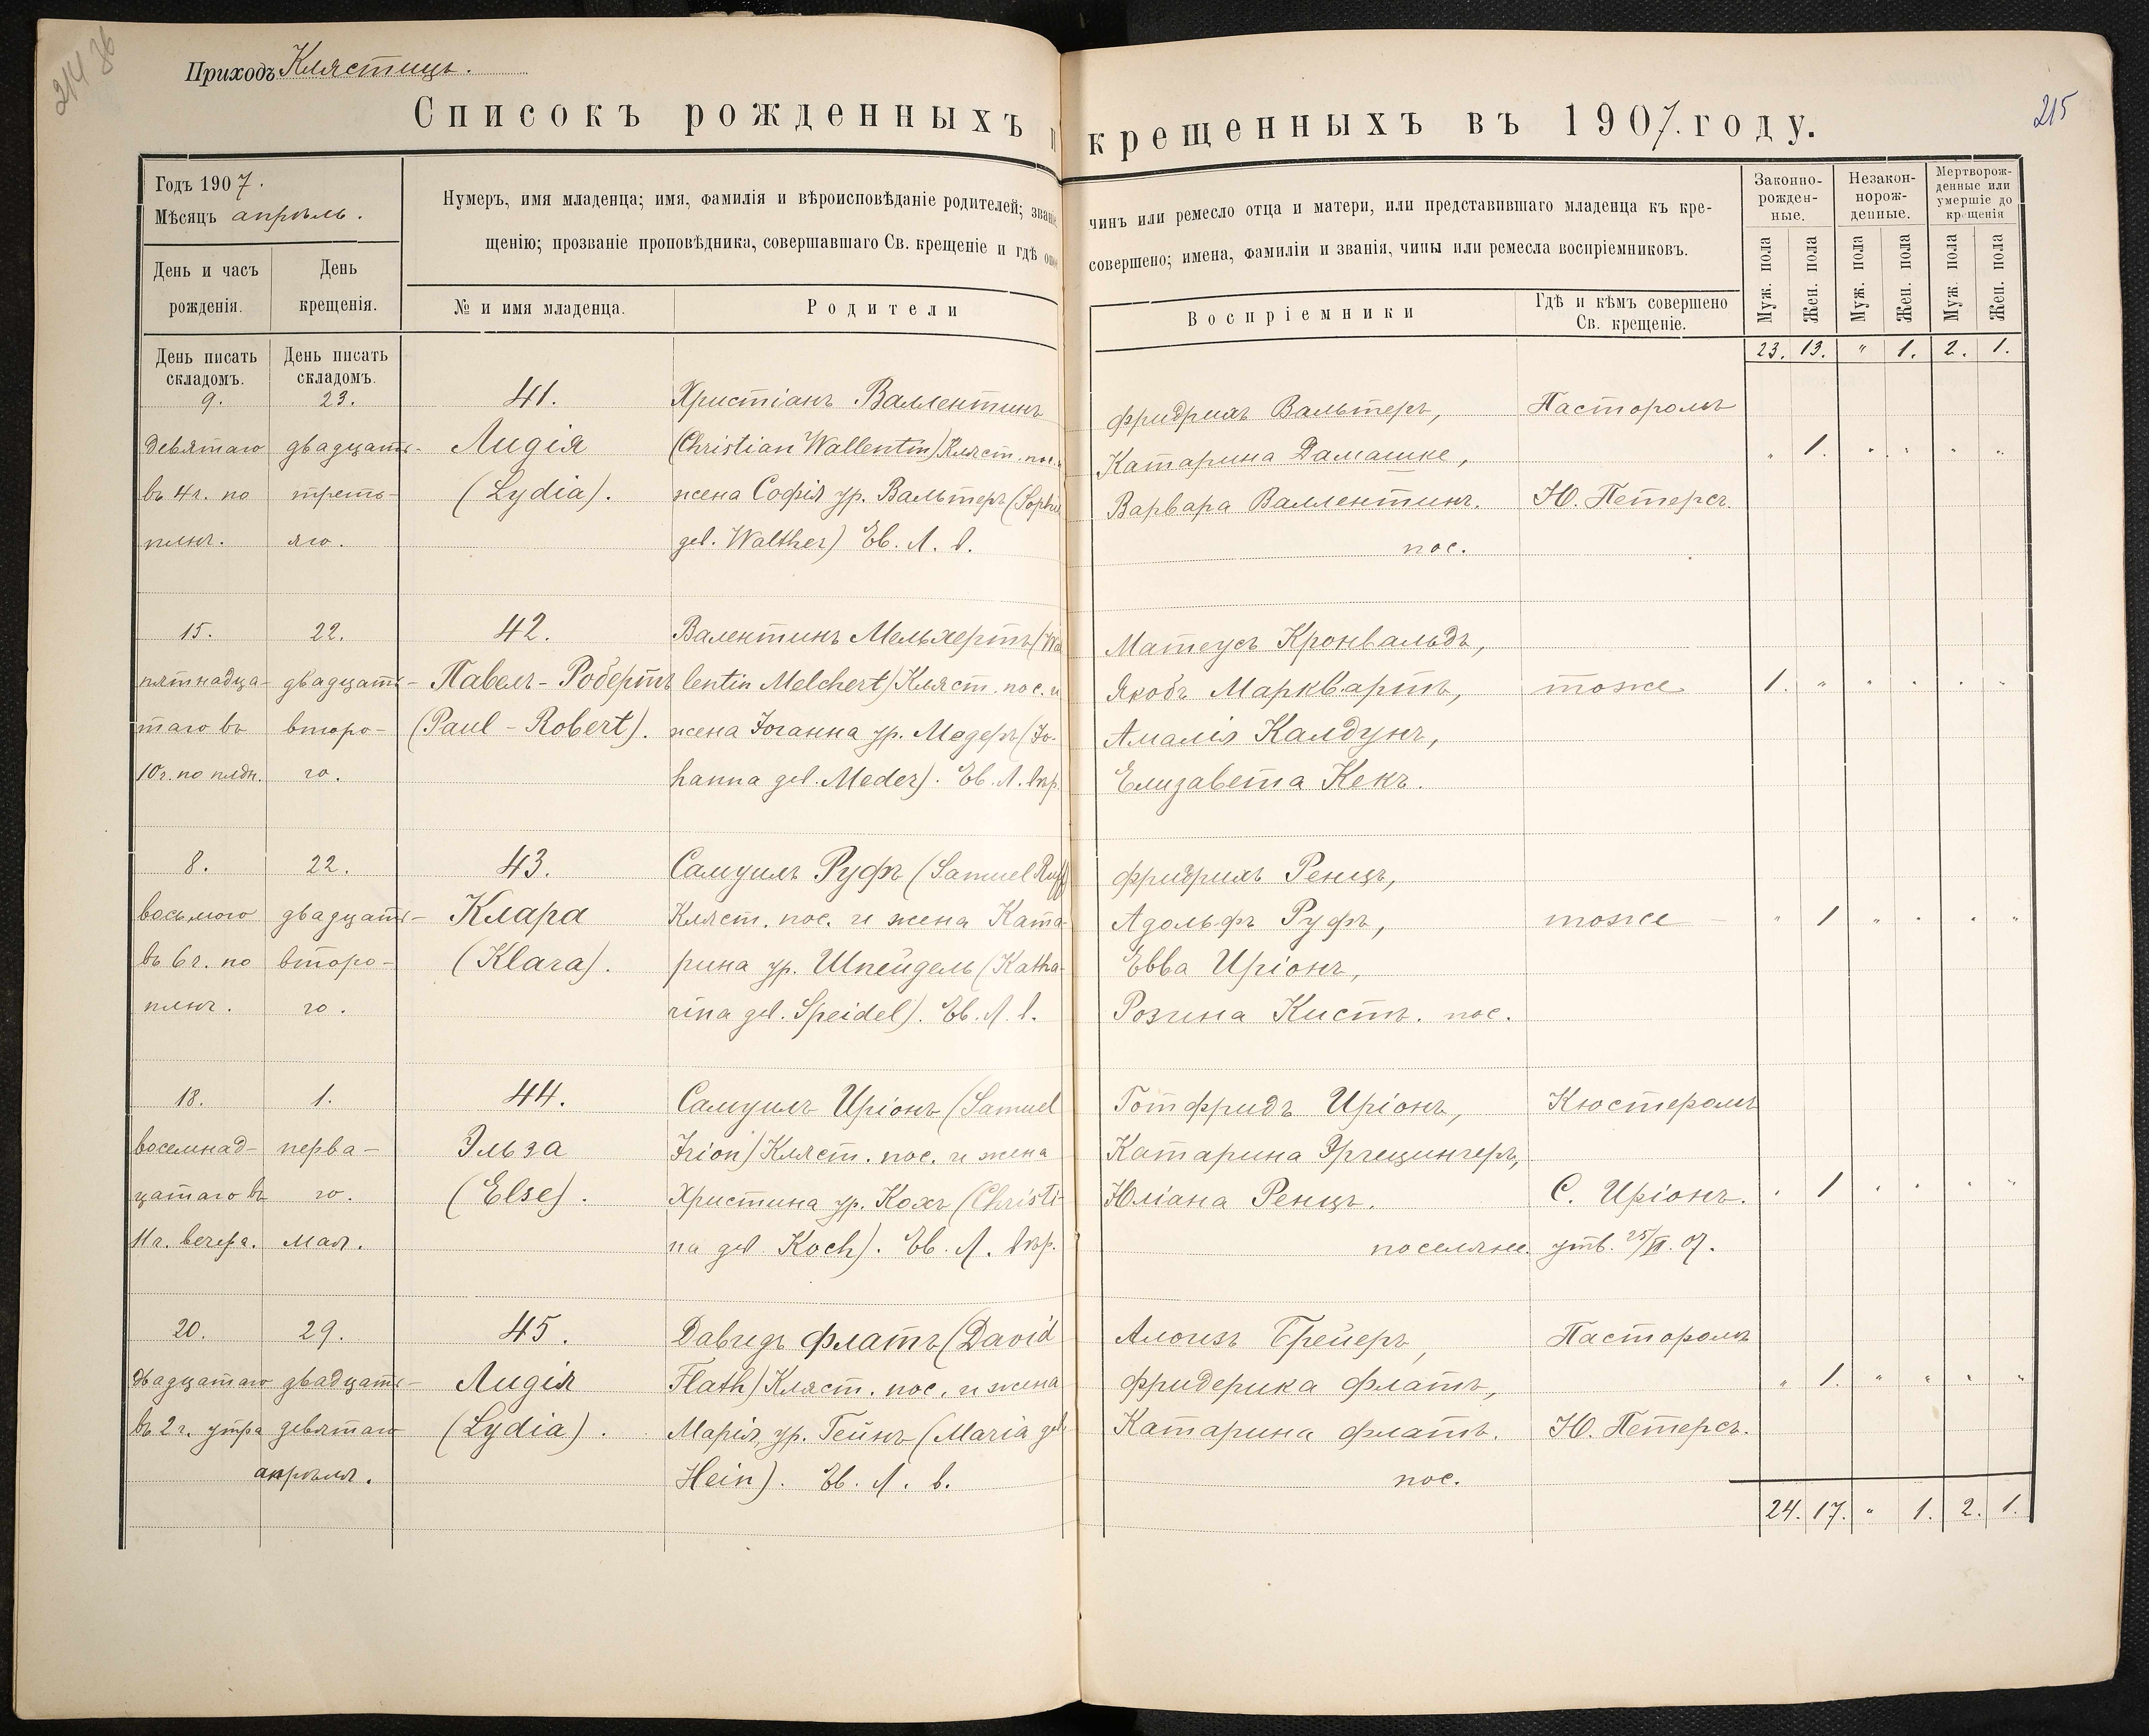 214 36
Приходъ Клястицъ.
215
Списокъ рожденныхъ и крещенныхъ въ 1907. году.
Годъ 1907.
Мѣсяцъ апрѣль.
День и часъ рожденія.
День крещенія.
Нумеръ, имя младенца; имя, фамилія и вѣроисповѣданіе родителей; званіе, чинъ или ремесло отца и матери, или представившаго младенца къ кре-
щенію; прозваніе проповѣдника, совершавшаго Св. крещеніе и гдѣ оное совершено; имена, фамиліи и званія, чины или ремесла воспріемниковъ.
№ и имя младенца.
Родители
Воспріемники
Гдѣ и кѣмъ совершено Св. крещеніе.
Законно-рожден-ные.
Незакон-норож-денные.
Мертворож-денные или умершіе до крещенія
Муж. пола
Жен. пола
Муж. пола
Жен. пола
Муж. пола
Жен. пола
День писать складомъ.
День писать складомъ.
23. 13. " 1. 2. 1.
9. 23. 41. Христіанъ Валлентинъ Фридрихъ Вальтеръ, Пасторомъ
девятаго двадцать- Лидія (Christian Wallentin) Кляст. пос. Катарина Дамашке, " 1. " " " "
въ 4 ч. по треть- (Lydia). жена Софія ур. Вальтеръ (Sophie Варвара Валлентинъ. Ю. Петерсъ.
плнч. яго. geb. Walther) Ев. Л. в. пос.
15. 22. 42. Валентинъ Мельхертъ (Wa Матеусъ Кронвальдъ,
пятнадца- двадцать- Павелъ-Робертъ lentin Melchert) Кляст. пос. и Якобъ Марквартъ, тоже 1. " " " " "
таго въ второ- (Paul-Robert). жена Іоганна ур. Медеръ (Jo- Амалія Калдунъ,
10 ч. по плдн. го. hanna geb. Meder). Ев. Л. вѣр. Елизавета Кекъ.
8. 22. 43. Самуилъ Руфъ (Samuel Ruff) Фридрихъ Ренцъ,
восьмого двадцать- Клара Кляст. пос. и жена Ката- Адольфъ Руфъ, тоже " 1 " " " "
въ 6 ч. по второ- (Klara). рина ур. Шпейдель (Katha- Евва Иріонъ,
плнч. го. rina geb. Speidel). Ев. Л. в. Розина Кистъ. пос.
18. 1. 44. Самуилъ Иріонъ (Samuel Готфридъ Иріонъ, Кюстеромъ
восемнад- перва- Эльза Irion) Кляст. пос. и жена Катарина
цатаго въ го. (Else). Христина ур. Кохъ (Christi- Юліана Ренцъ. С. Иріонъ. " 1 " " " "
11 ч. вечера. мая. na geb. Koch). Ев. Л. вѣр. поселяне. утв. 25/VI. 07.
20. 29. 45. Давидъ Флатъ (David Алоизъ Брейеръ, Пасторомъ
двадцатаго двадцать- Лидія Flath) Кляст. пос. и жена Фридерика Флатъ, " 1. " " " "
въ 2 ч. утра девятаго (Lydia). Марія, ур. Гейнъ (Maria geb. Катарина Флатъ. Ю. Петерсъ.
апрѣля. Hein). Ев. Л. в. пос.
24. 17. " 1. 2. 1.